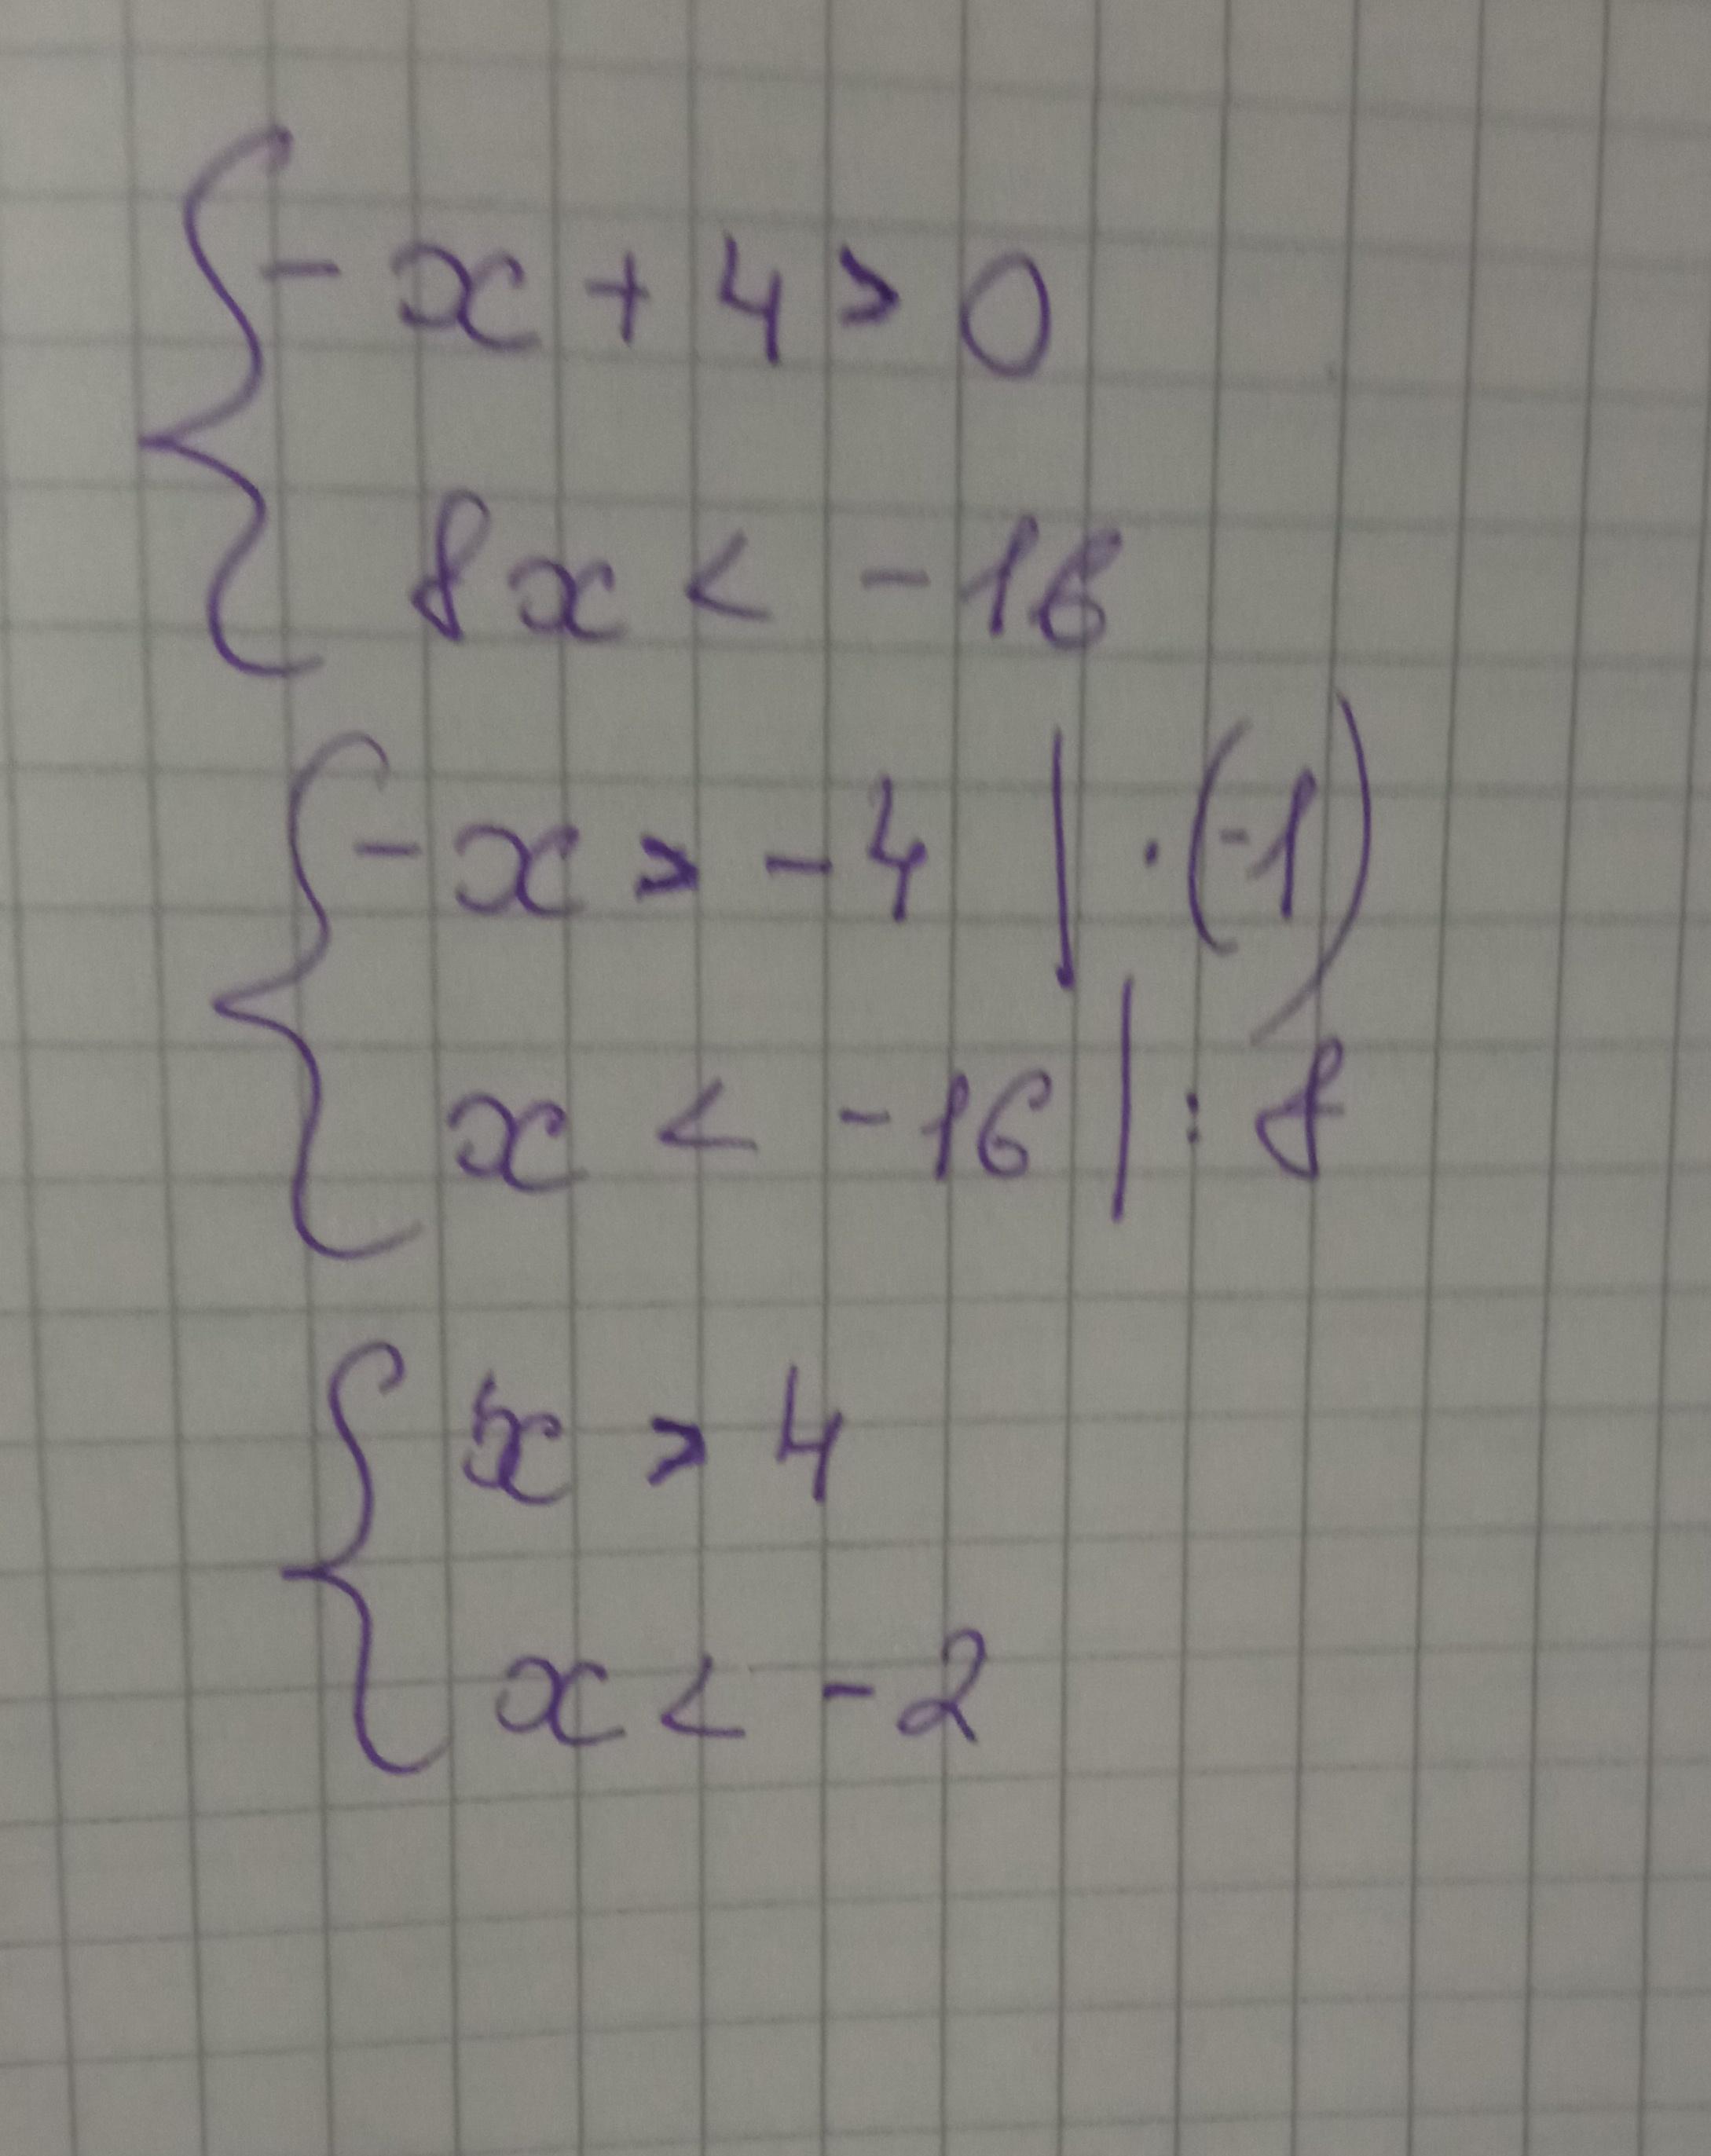 - x + 4 > 0
8x < - 16
- x > - 4 | · (-1)
x < - 16 | : 8
x > 4
x < - 2